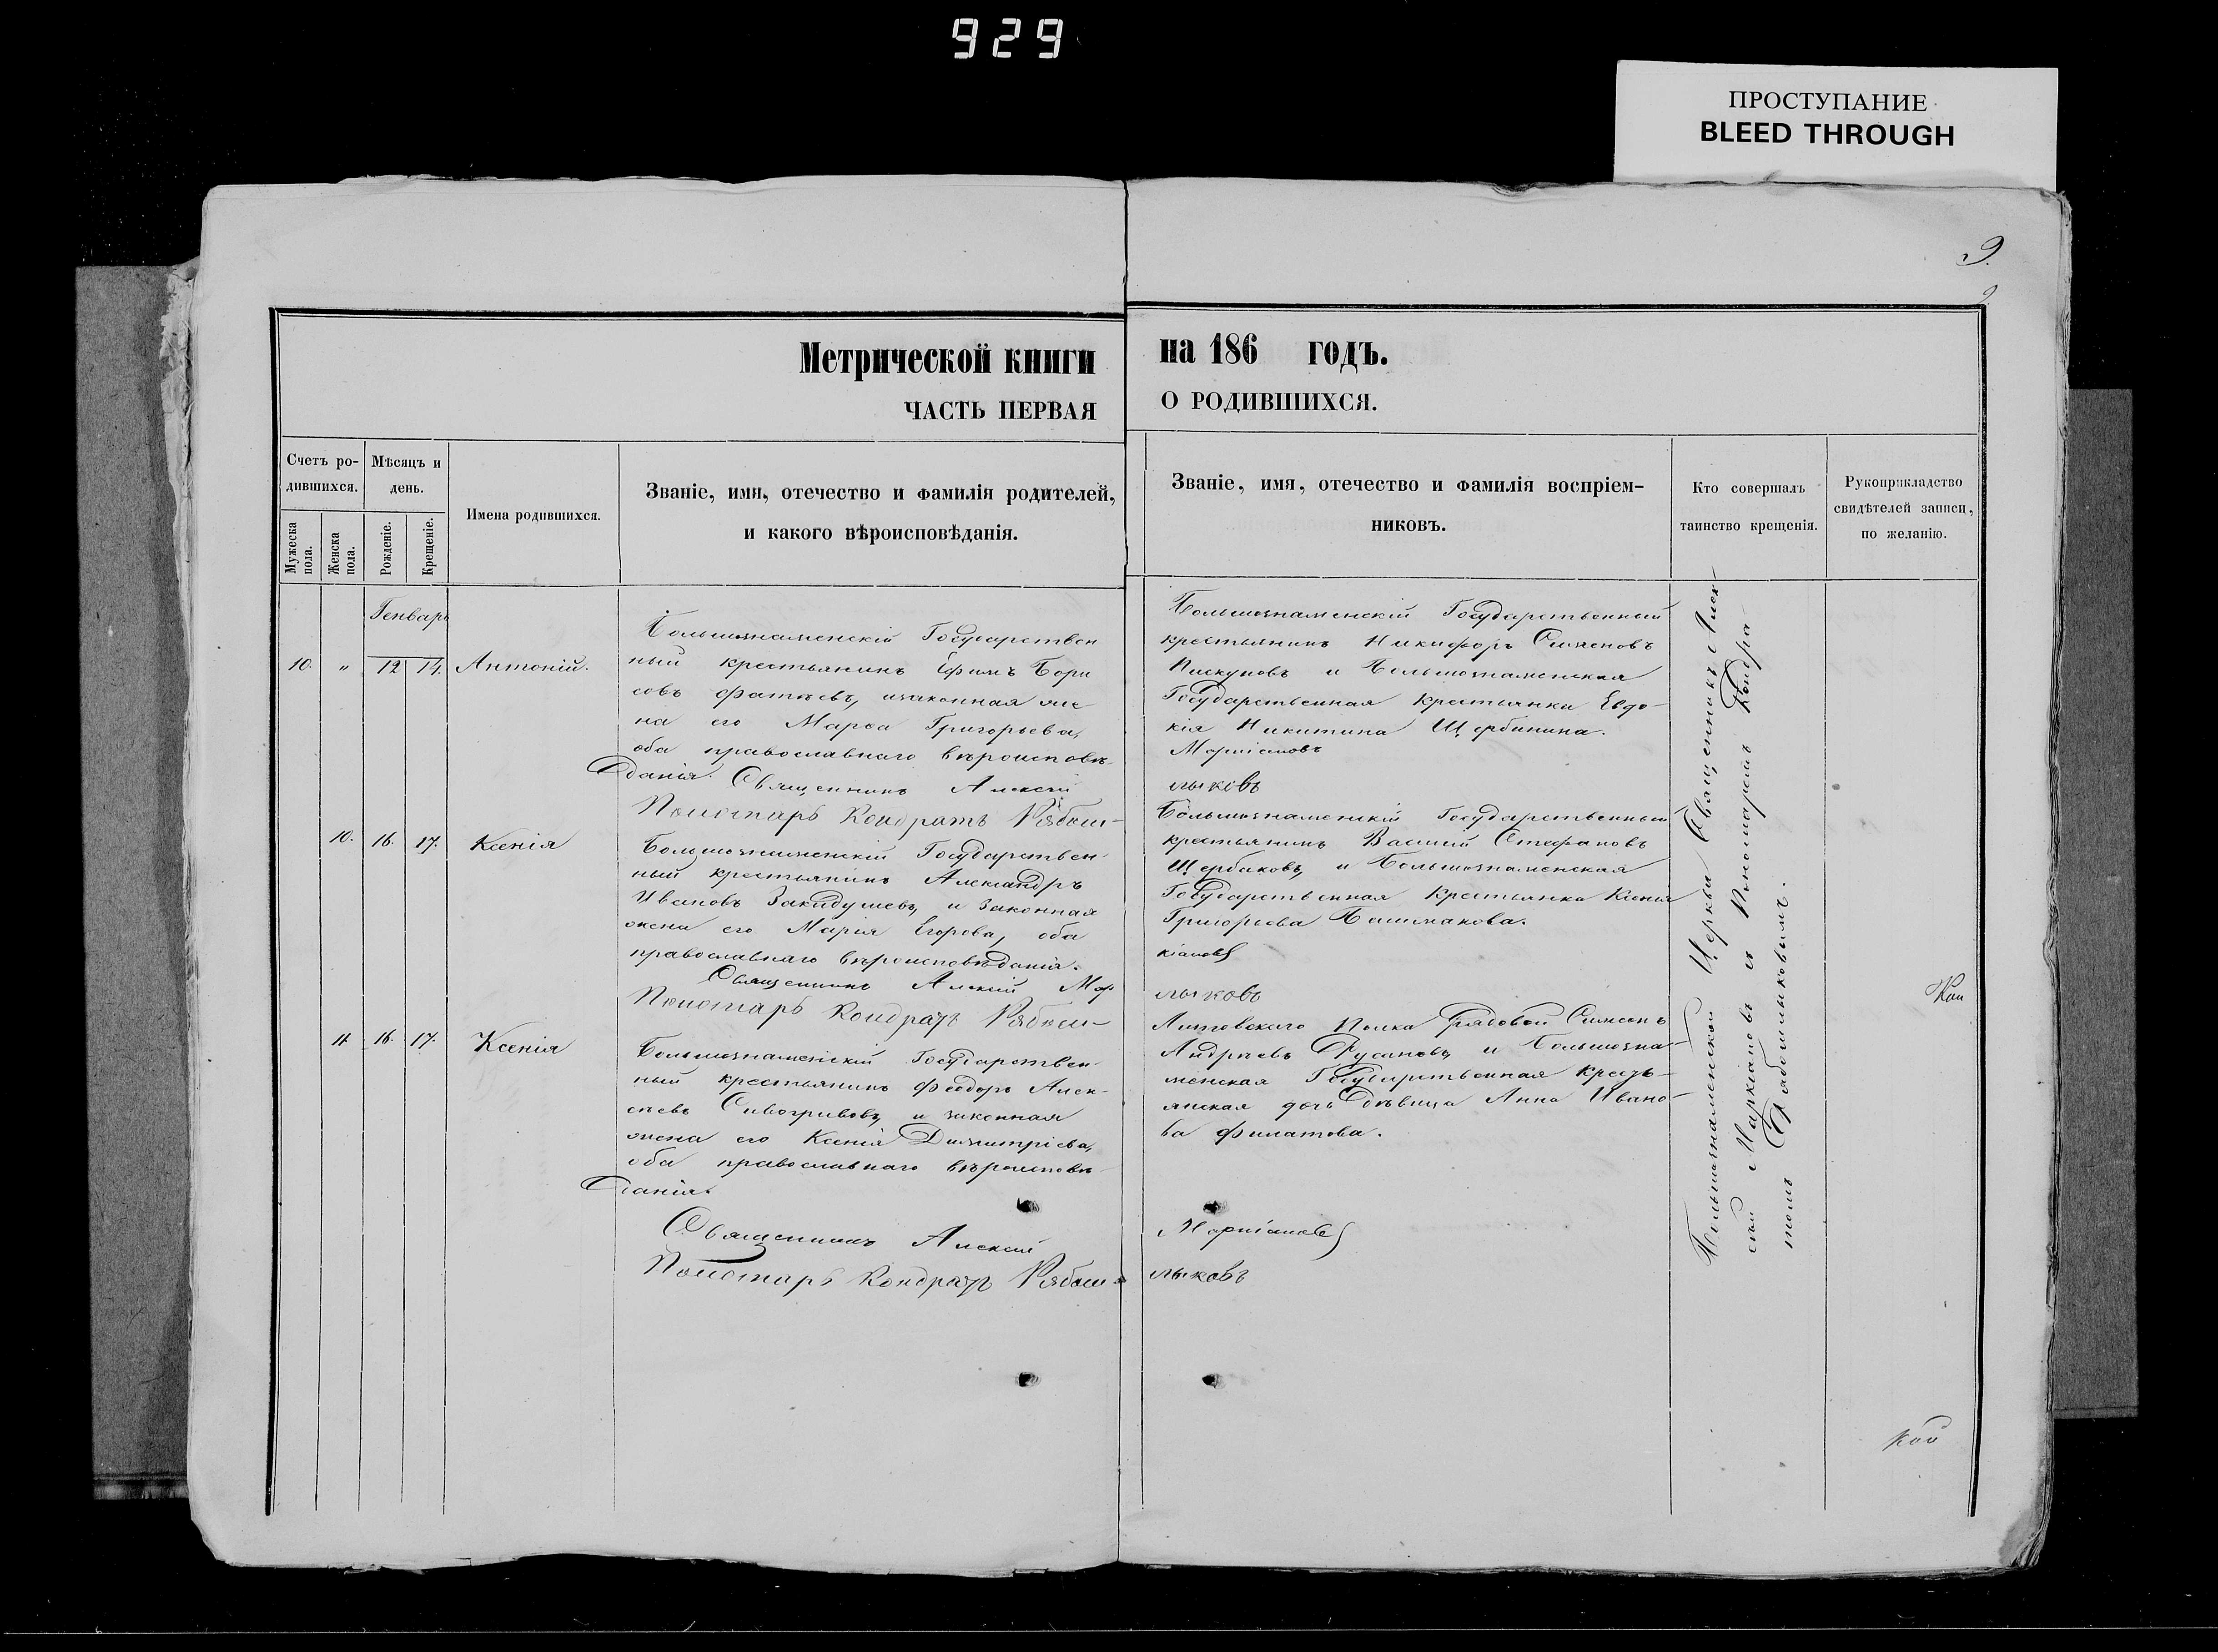 929
ПРОСТУПАНИЕ
BLEED THROUGH
9.
Метрической книги на 186 годъ.
ЧАСТЬ ПЕРВАЯ О РОДИВШИХСЯ.
Счетъ ро-
дившихся.
Мужеска пола.
Женска пола.
Мѣсяцъ и
день.
Рожденіе.
Крещеніе.
Имена родившихся.
Званіе, имя, отечество и фамилія родителей,
и какого вѣроисповѣданія.
Званіе, имя, отечество и фамилія воспріем-
никовъ.
Кто совершалъ
таинство крещенія.
Рукоприкладство
свидѣтелей записи,
по желанію.
Генварь
10. " 12 14. Антоній.
Большознаменскій Государствен
ный крестьянинъ Ефимъ Бори
совъ Фатѣевъ, и законная же
на его Марѳа Григорьева,
оба православнаго вѣроисповѣ-
данія. Священникъ Алексій
Пономарь Кондратъ Рябош-
Большознаменскій Государственный
крестьянинъ Никифоръ Симеоновъ
Пискуновъ и Большознаменская
Государственная крестьянка Евдо-
кія Никитина Щербинина.
Маркіановъ
лыковъ
10. 16. 17. Ксенія
Большознаменскій Государствен-
ный крестьянинъ Александръ
Ивановъ Закидушевъ, и законная
жена его Марія Егорова, оба
православнаго вѣроисповѣданія.
Священникъ Алексій Мар
Пономарь Кондратъ Рябош-
Большознаменскій Государственный
крестьянинъ Василій Стефановъ
Щербаковъ, и Большознаменская
Государственная Крестьянка Ксенія
Григорьева Башмакова.
кіановъ
лыковъ
11. 16. 17. Ксенія
Большознаменскій Государствен-
ный крестьянинъ Феодоръ Алек-
сѣевъ Сивогривовъ, и законная
жена его Ксенія Димитріева,
оба православнаго вѣроисповѣ-
данія.
Священникъ Алексій
Пономарь Кондратъ Рябош-
Литовскаго Полка Рядовой Симеонъ
Андреевъ Русановъ, и Большозна-
менская Государственная кресть-
янская дочь Дѣвица Анна Ивано-
ва Филатова.
Маркіановъ
лыковъ
Большознаменской Церкви Священникъ Алек-
сѣй Маркіановъ и Пономаремъ Кондра-
томъ Рябошлыковымъ.